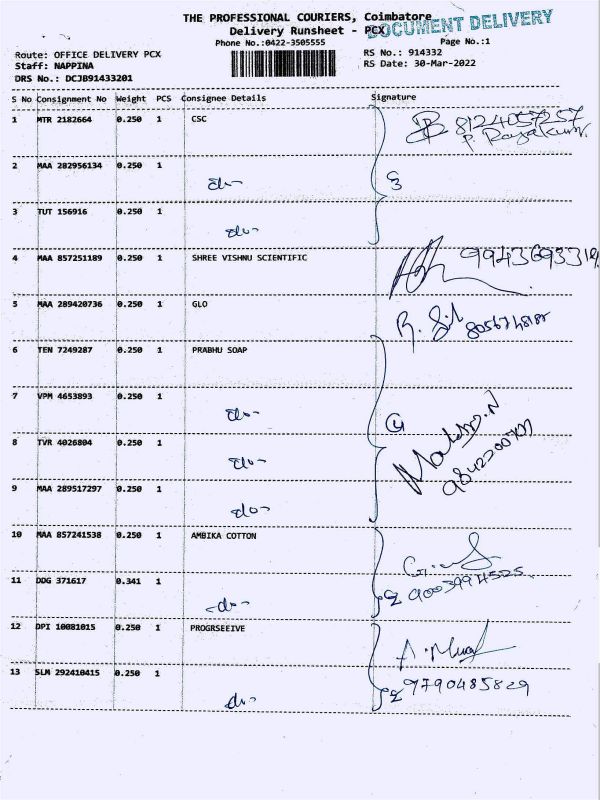 THE PROFESSIONAL COURIERS, Coimbatore
DOCUMENT DELIVERY
Delivery Runsheet - PCX
Phone No.:0422-3505555
Page No.:1
Route: OFFICE DELIVERY PCX
RS No.: 914332
Staff: NAPPINA
RS Date: 30-Mar-2022
DRS No.: DCJB91433201
S No Consignment No Weight PCS Consignee Details Signature
1 MTR 2182664 0.250 1 CSC 8124057257
2 MAA 282956134 0.250 1 -do-
3 TUT 156916 0.250 1 -do-
4 MAA 857251189 0.250 1 SHREE VISHNU SCIENTIFIC
5 MAA 289420736 0.250 1 GLO
6 TEN 7249287 0.250 1 PRABHU SOAP
7 VPM 4653893 0.250 1 -do-
8 TVR 4026804 0.250 1 -do-
9 MAA 289517297 0.250 1 -do-
10 MAA 857241538 0.250 1 AMBIKA COTTON
11 DDG 371617 0.341 1 -do- 9003994525
12 DPI 10081015 0.250 1 PROGRSEEIVE
13 SLM 292410415 0.250 1 -do- 9790485829